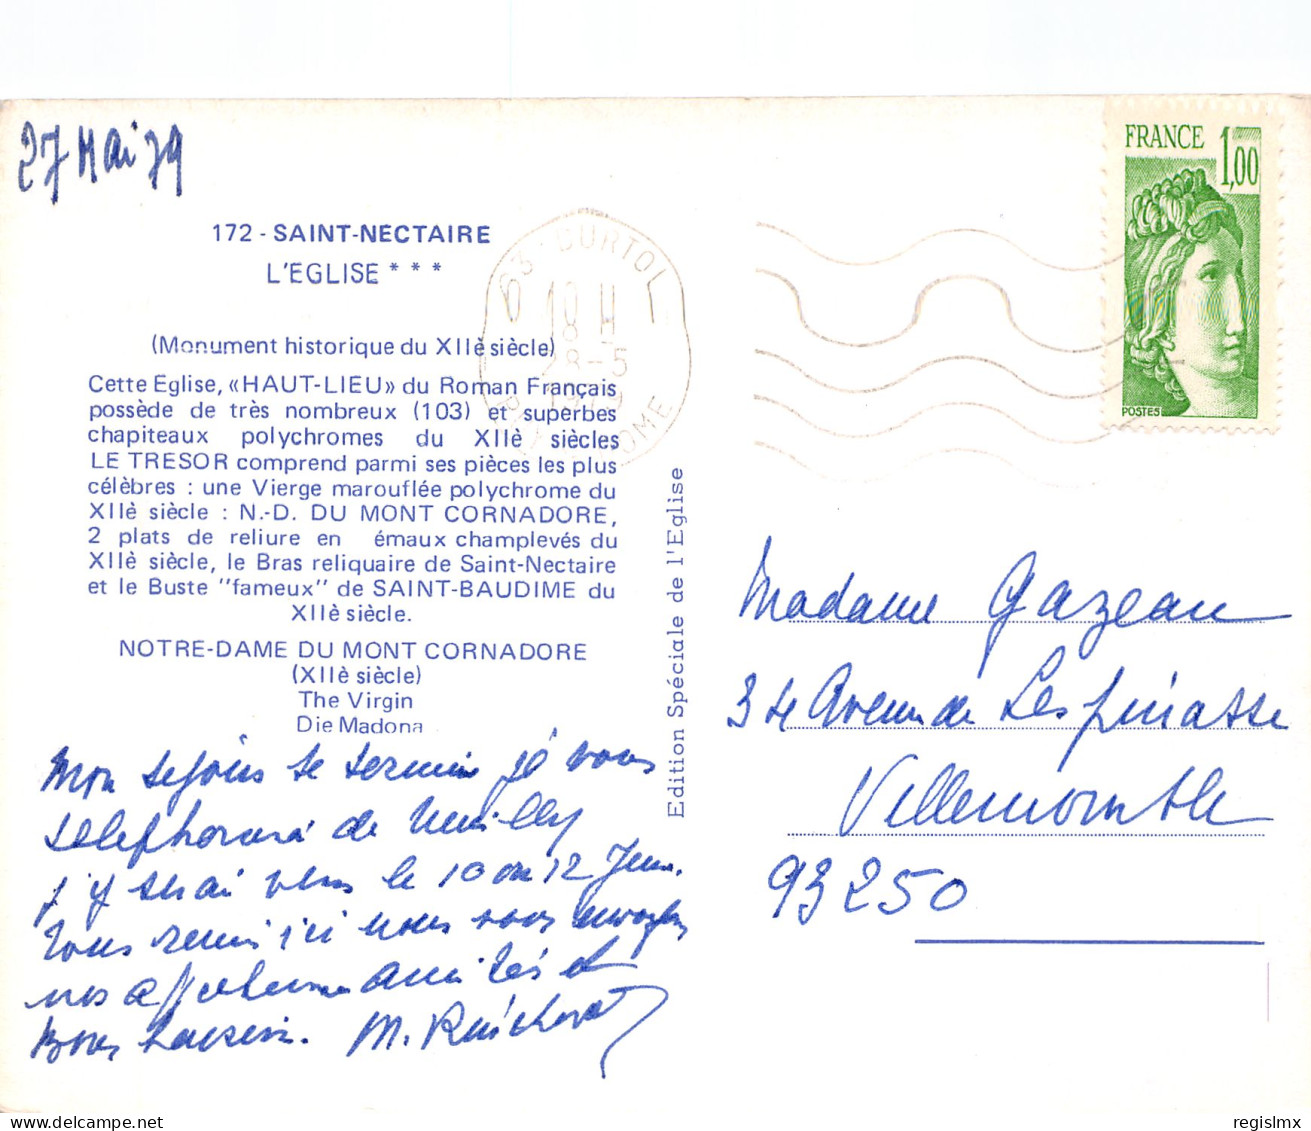 27 Mai 79
FRANCE
1,00
POSTES
172 - SAINT-NECTAIRE
L'EGLISE * * *
63 DURTOL
10 H
28-5
1979
PUY DOME
(Monument historique du XIIè siècle)
Cette Eglise, «HAUT-LIEU» du Roman Français
possède de très nombreux (103) et superbes
chapiteaux polychromes du XIIè siècles
LE TRESOR comprend parmi ses pièces les plus
célèbres : une Vierge marouflée polychrome du
XIIè siècle : N.-D. DU MONT CORNADORE,
2 plats de reliure en émaux champlevés du
XIIè siècle, le Bras reliquaire de Saint-Nectaire
et le Buste "fameux" de SAINT-BAUDIME du
XIIè siècle.
NOTRE-DAME DU MONT CORNADORE
(XIIè siècle)
The Virgin
Die Madona
Edition Spéciale de l'Eglise
Mon séjour se termine je vous
téléphonerai de Neuilly
j'y serai vers le 10 ou 12 Juin.
Tous réunis ici nous vous envoyons
nos affectueuses amitiés et
Bons baisers. M.
Madame Gazeau
34 Avenue de Lespinasse
Villemomble
93250
regislmx